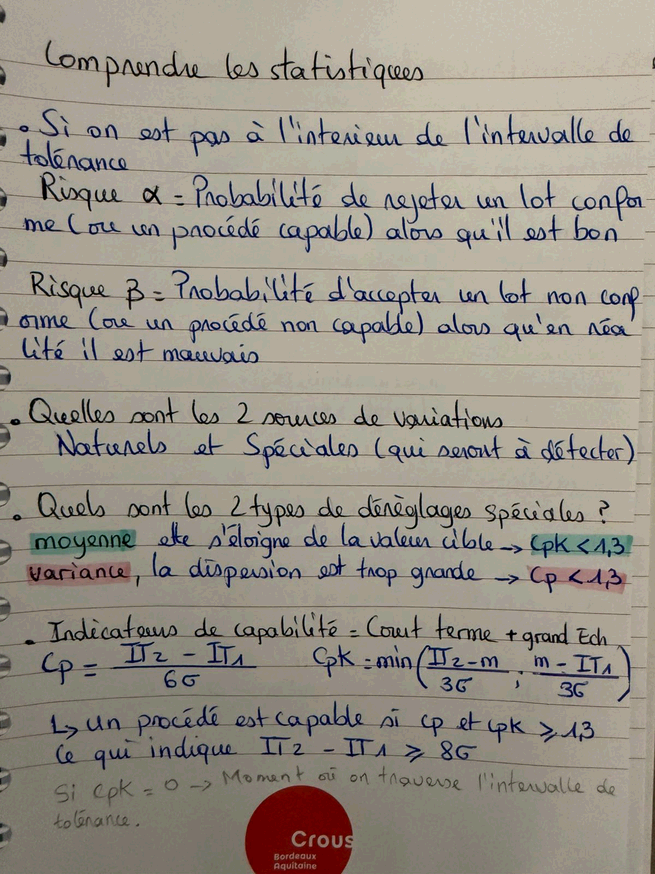 Comprendre les statistiques
• Si on est pas à l'interieur de l'intervalle de
tolérance
Risque α = Probabilité de rejeter un lot confor
me (ou un procédé capable) alors qu'il est bon
Risque β = Probabilité d'accepter un lot non conf
orme (ou un procédé non capable) alors qu'en réa
lité il est mauvais
• Quelles sont les 2 sources de variations
Naturels et Spéciales (qui seront à détecter)
• Quels sont les 2 types de déréglages spéciales ?
moyenne elle s'éloigne de la valeur cible → Cpk < 1,3
variance, la dispersion est trop grande → Cp < 1,3
• Indicateurs de capabilité = Court terme + grand Ech
Cp = (IT2 - IT1)/6σ Cpk = min(IT2-m/3σ ; m-IT1/3σ)
↳ un procédé est capable si Cp et Cpk ⩾ 1,3
Ce qui indique IT2 - IT1 ⩾ 8σ
Si Cpk = 0 → Moment où on traverse l'intervalle de
tolérance.
Crous
Bordeaux
Aquitaine